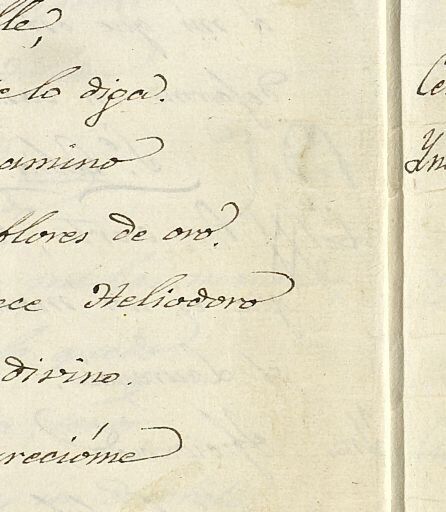 lle,
e lo diga.
camino
flores de oro.
ece Heliodoro
divino.
areciòme